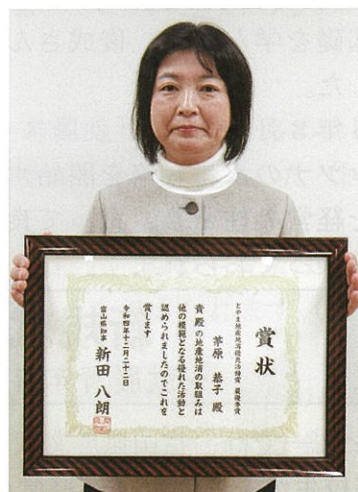 賞状
とやま地産地消優良活動賞 最優秀賞
茅原 恭子 殿
貴殿の地産地消の取組みは
他の模範となる優れた活動と
認められましたのでこれを
賞します
令和四年十二月二十二日
富山県知事 新田 八朗